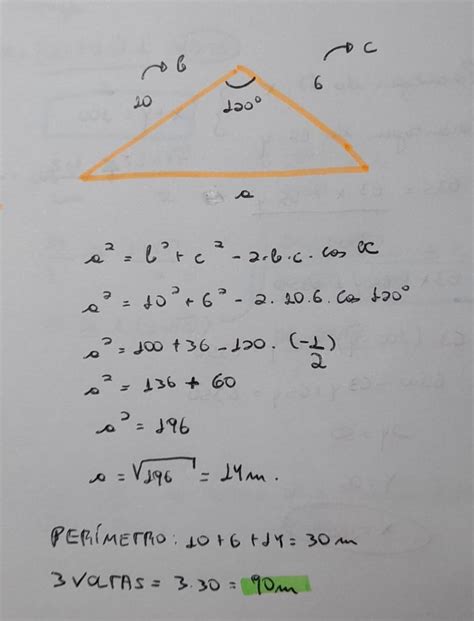 b
c
10
6
120°
a
a² = b² + c² - 2.b.c. cos α
a² = 10² + 6² - 2. 10.6. cos 120°
a² = 100 + 36 - 120. (-1/2)
a² = 136 + 60
a² = 196
a = √196 = 14m.
PERÍMETRO: 10 + 6 + 14 = 30m
3 VOLTAS = 3.30 = 90m